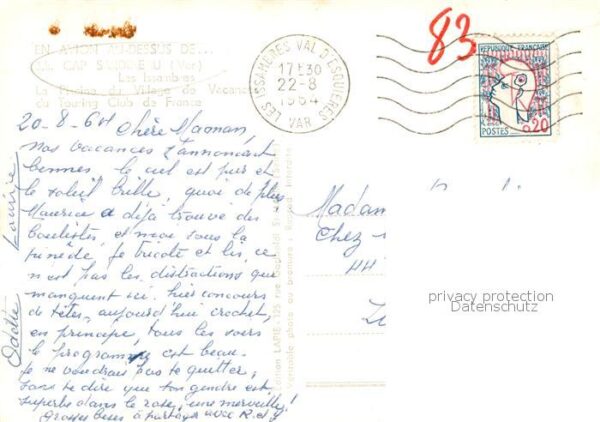 EN AVION AU-DESSUS DE...
CAP (Var)
Les Issambres
La du Village de Vacances
du Touring Club de France
LES ISSAMBRES VAL D'ESQUIERES
17H30
22-8
1964
VAR
83
REPUBLIQUE FRANÇAISE
POSTES 0,20
20-8-64 Chère Maman,
Nos vacances s'annoncent
bonnes. le ciel est pur et
le soleil brille, quoi de plus
Maurice a déjà trouvé des
boulistes, et moi sous la
pinède, je tricote et lis, ce
n'est pas les distractions que
manquent ici. hier concours
de têtes, aujourd'hui crochet,
en principe, tous les soirs
le programme est beau.
Je ne voudrais pas te quitter,
sans te dire que ton gendre est
superbe dans le rose, une merveille!
Grosses bises à partager avec R. et
Odette
Madam
Chez
44
Edition LAPIE
Véritable photo au bromure
privacy protection
Datenschutz